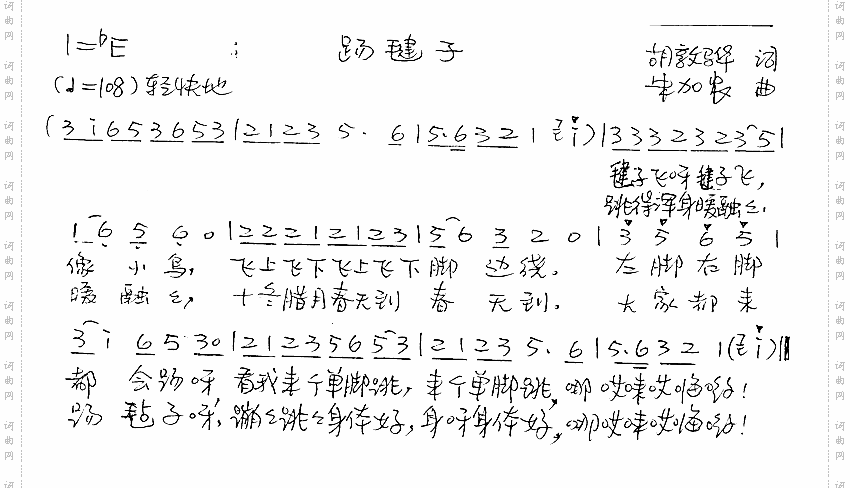 1=♭E
踢毽子
胡敦骅 词
(♩=108)轻快地
朱加农 曲
(3 i 6 5 3 6 5 3 | 2 1 2 3 5. 6 | 5. 6 3 2 1 i) | 3 3 3 2 3 2 3 5 |
毽子飞呀毽子飞,
跳得浑身暖融々.
1 6 5 6 0 | 2 2 2 1 2 1 2 3 | 5 6 3 2 0 | 3 5 6 5 |
像小鸟, 飞上飞下飞上飞下脚边绕. 左脚右脚
暖融々, 十冬腊月春天到春天到. 大家都来
3 i 6 5 3 0 | 2 1 2 3 5 6 5 3 | 2 1 2 3 5. 6 | 5. 6 3 2 1 (i) ||
都会踢呀看我来个单脚跳, 来个单脚跳, 哪哎唻哎嗨哟!
踢毽子呀, 蹦々跳々身体好, 身呀身体好, 哪哎唻哎嗨哟!
词曲网